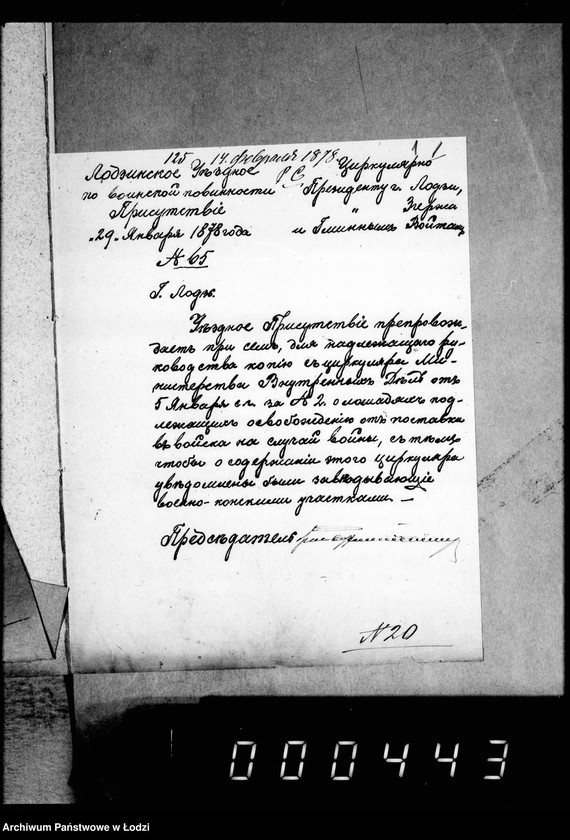 125 14 Февраля 1878
Лодзинское Уѣздное
по воинской повинности
Присутствіе
„29„ Января 1878 года
№ 65
Г. Лодзь.
Циркулярно
Президенту г. Лодзи,
" Згержа
и Гминнымъ Войтамъ
Уѣздное Присутствіе препровож-
даетъ при семъ, для надлежащаго ру-
ководства копію съ циркуляра Ми-
нистерства Внутреннихъ Дѣлъ отъ
5 Января с. г. за № 2. о лошадяхъ под-
лежащихъ освобожденію отъ поставки
въ войска на случай войны, съ тѣмъ
чтобы о содержаніи этого циркуляра
увѣдомлены были завѣдывающіе
военно-конскими участками. —
Предсѣдатель
№ 20
000443
Archiwum Państwowe w Łodzi